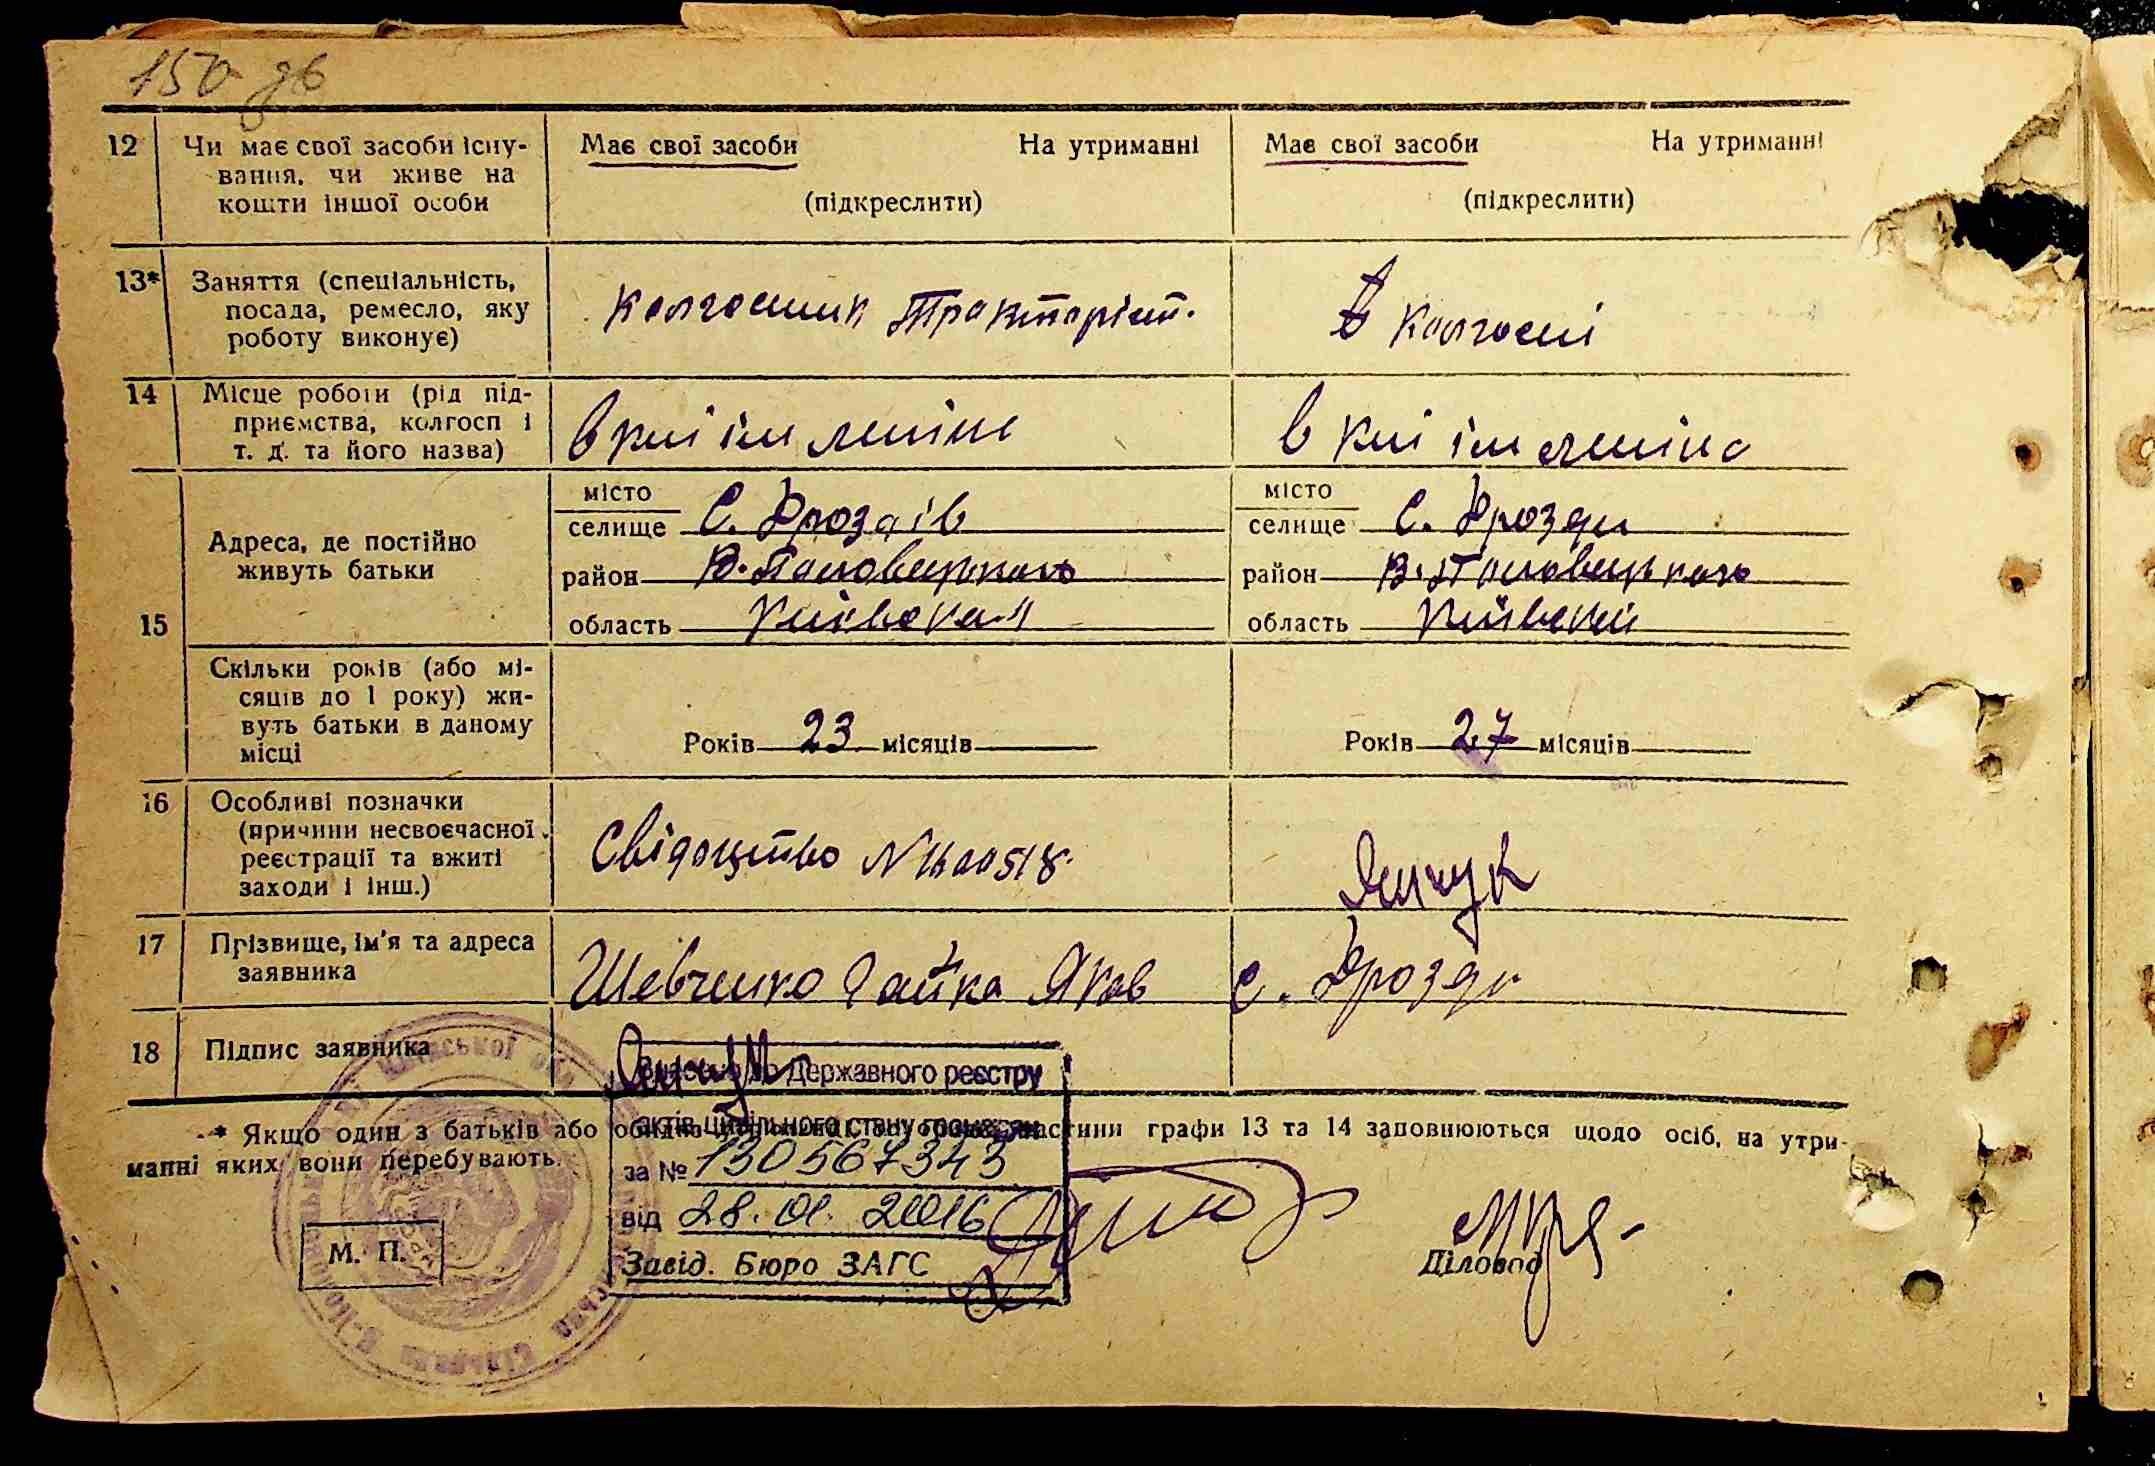 150 зв
12 Чи має свої засоби існу-
вання, чи живе на
кошти іншої особи
Має свої засоби На утриманні
(підкреслити)
Має свої засоби На утриманні
(підкреслити)
13* Заняття (спеціальність,
посада, ремесло, яку
роботу виконує)
колгоспник тракторист.
В колгоспі
14 Місце роботи (рід під-
приємства, колгосп і
т. д. та його назва)
в кпі ім леніна
в кпі ім леніна
15 Адреса, де постійно
живуть батьки
місто
селище С. Дроздів
район В. Половецького
область Київська
місто
селище С. Дрозди
район В. Половецького
область Київській
Скільки років (або мі-
сяців до 1 року) жи-
вуть батьки в даному
місці
Років 23 місяців
Років 27 місяців
16 Особливі позначки
(причини несвоєчасної
реєстрації та вжиті
заходи і інш.)
Свідоцтво N
17 Прізвище, ім'я та адреса
заявника
Шевченко Яков С. Дрозди
18 Підпис заявника
Державного реєстру
актів цивільного стану громадян
за № 130567343
від 28.01.2016
Завід. Бюро ЗАГС
* Якщо один з батьків або графи 13 та 14 заповнюються щодо осіб, на утри-
манні яких вони перебувають.
М. П.
Діловод